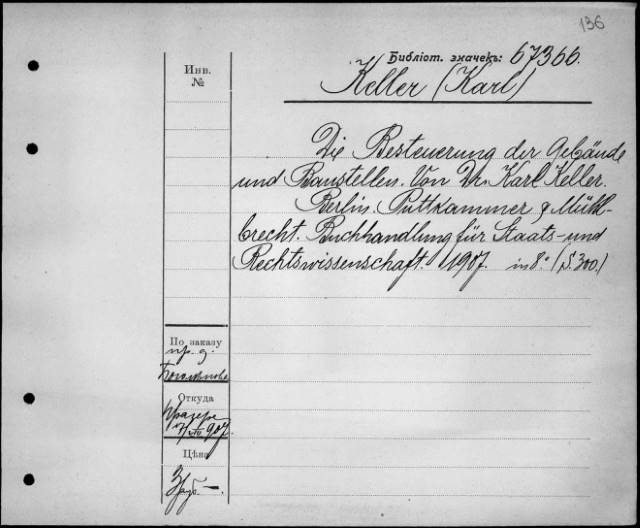 136
Библіот. значекъ: 67366.
Keller (Karl)
Инв.
№
Die Besteuerung der Gebäude
und Baustellen. Von Dr. Karl Keller.
Berlin. Puttkammer & Mühl-
brecht. Buchhandlung für Staats- und
Rechtswissenschaft. 1907. in 8°. (S. 300.)
По заказу
пр. д.
Откуда
907.
Цѣна
3 руб. —